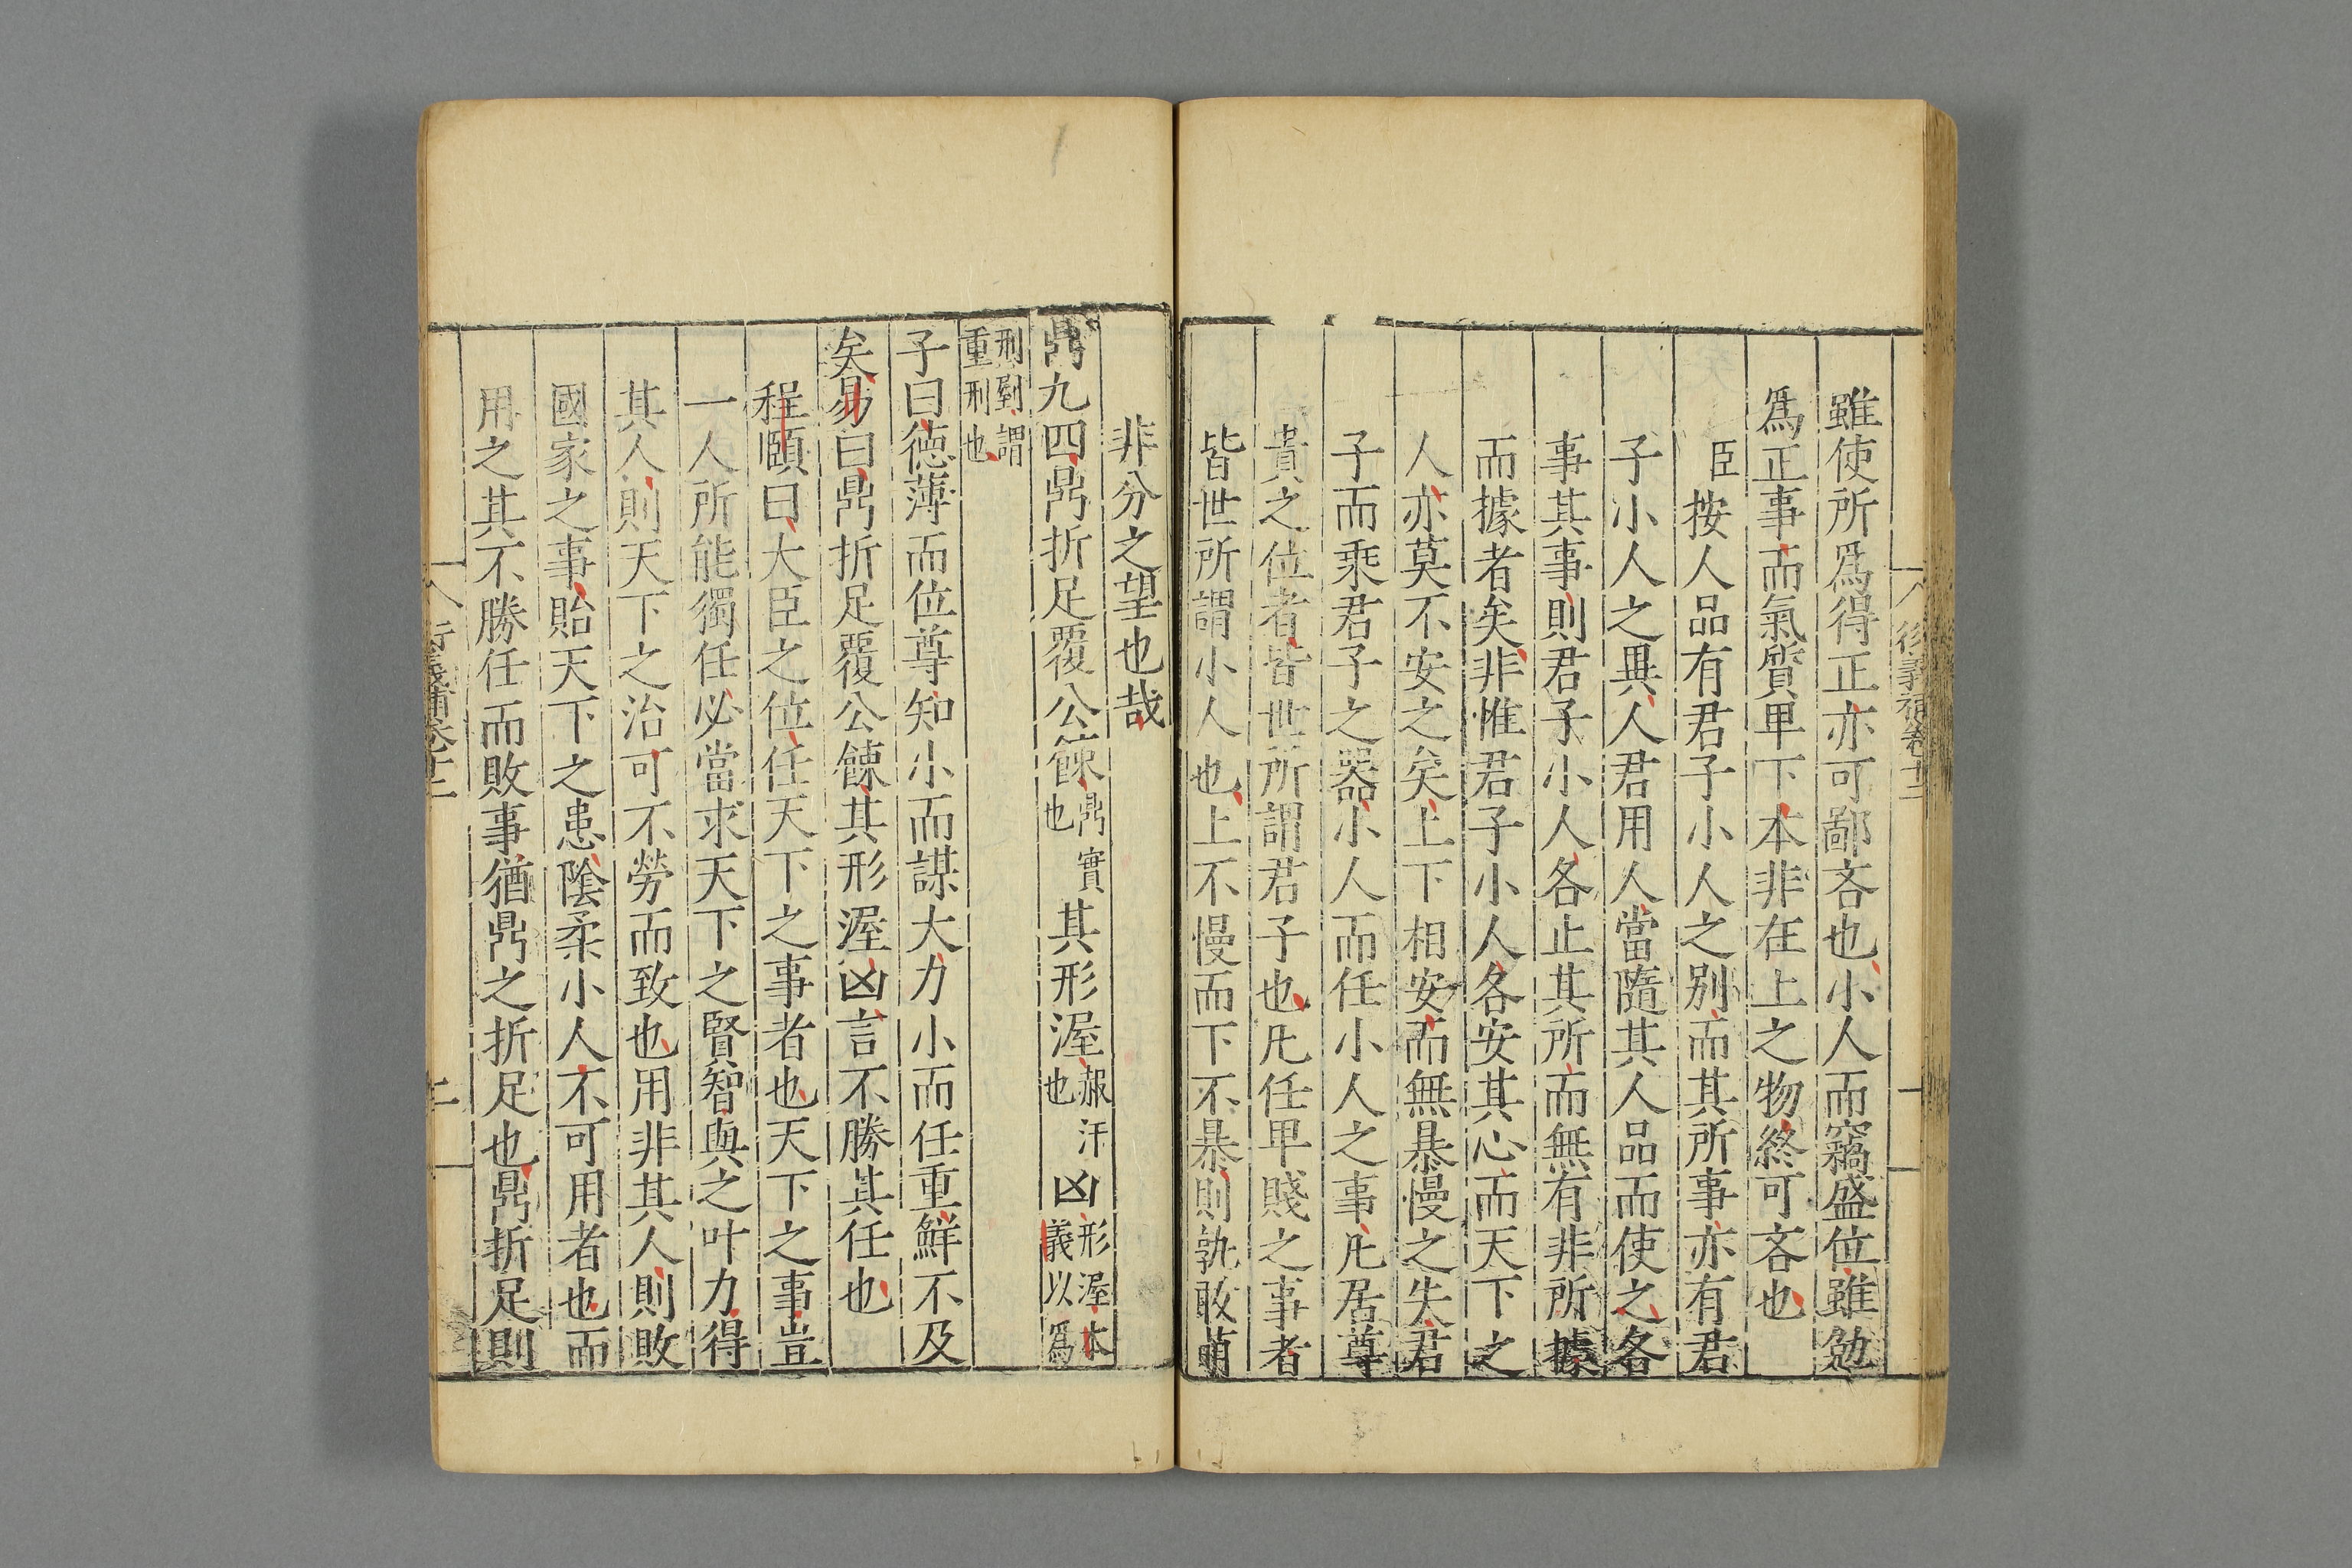 雖使所爲得正亦可鄙吝也小人而竊盛位雖勉
爲正事而氣質卑下本非在上之物終可吝也
臣按人品有君子小人之别而其所事亦有君
子小人之異人君用人當隨其人品而使之各
事其事則君子小人各止其所而無有非所據
而據者矣非惟君子小人各安其心而天下之
人亦莫不安之矣上下相安而無暴慢之失君
子而乘君子之器小人而任小人之事凡居尊
貴之位者皆世所謂君子也凡任卑賤之事者
皆世所謂小人也上不慢而下不暴則孰敢萌
非分之望也哉
鼎九四鼎折足覆公餗鼎實也其形渥赧汗也凶形渥本義以爲
刑剭謂重刑也
子曰德薄而位尊知小而謀大力小而任重鮮不及
矣易曰鼎折足覆公餗其形渥凶言不勝其任也
程頤曰大臣之位任天下之事者也天下之事豈
一人所能獨任必當求天下之賢智與之叶力得
其人則天下之治可不勞而致也用非其人則敗
國家之事貽天下之患陰柔小人不可用者也而
用之其不勝任而敗事猶鼎之折足也鼎折足則